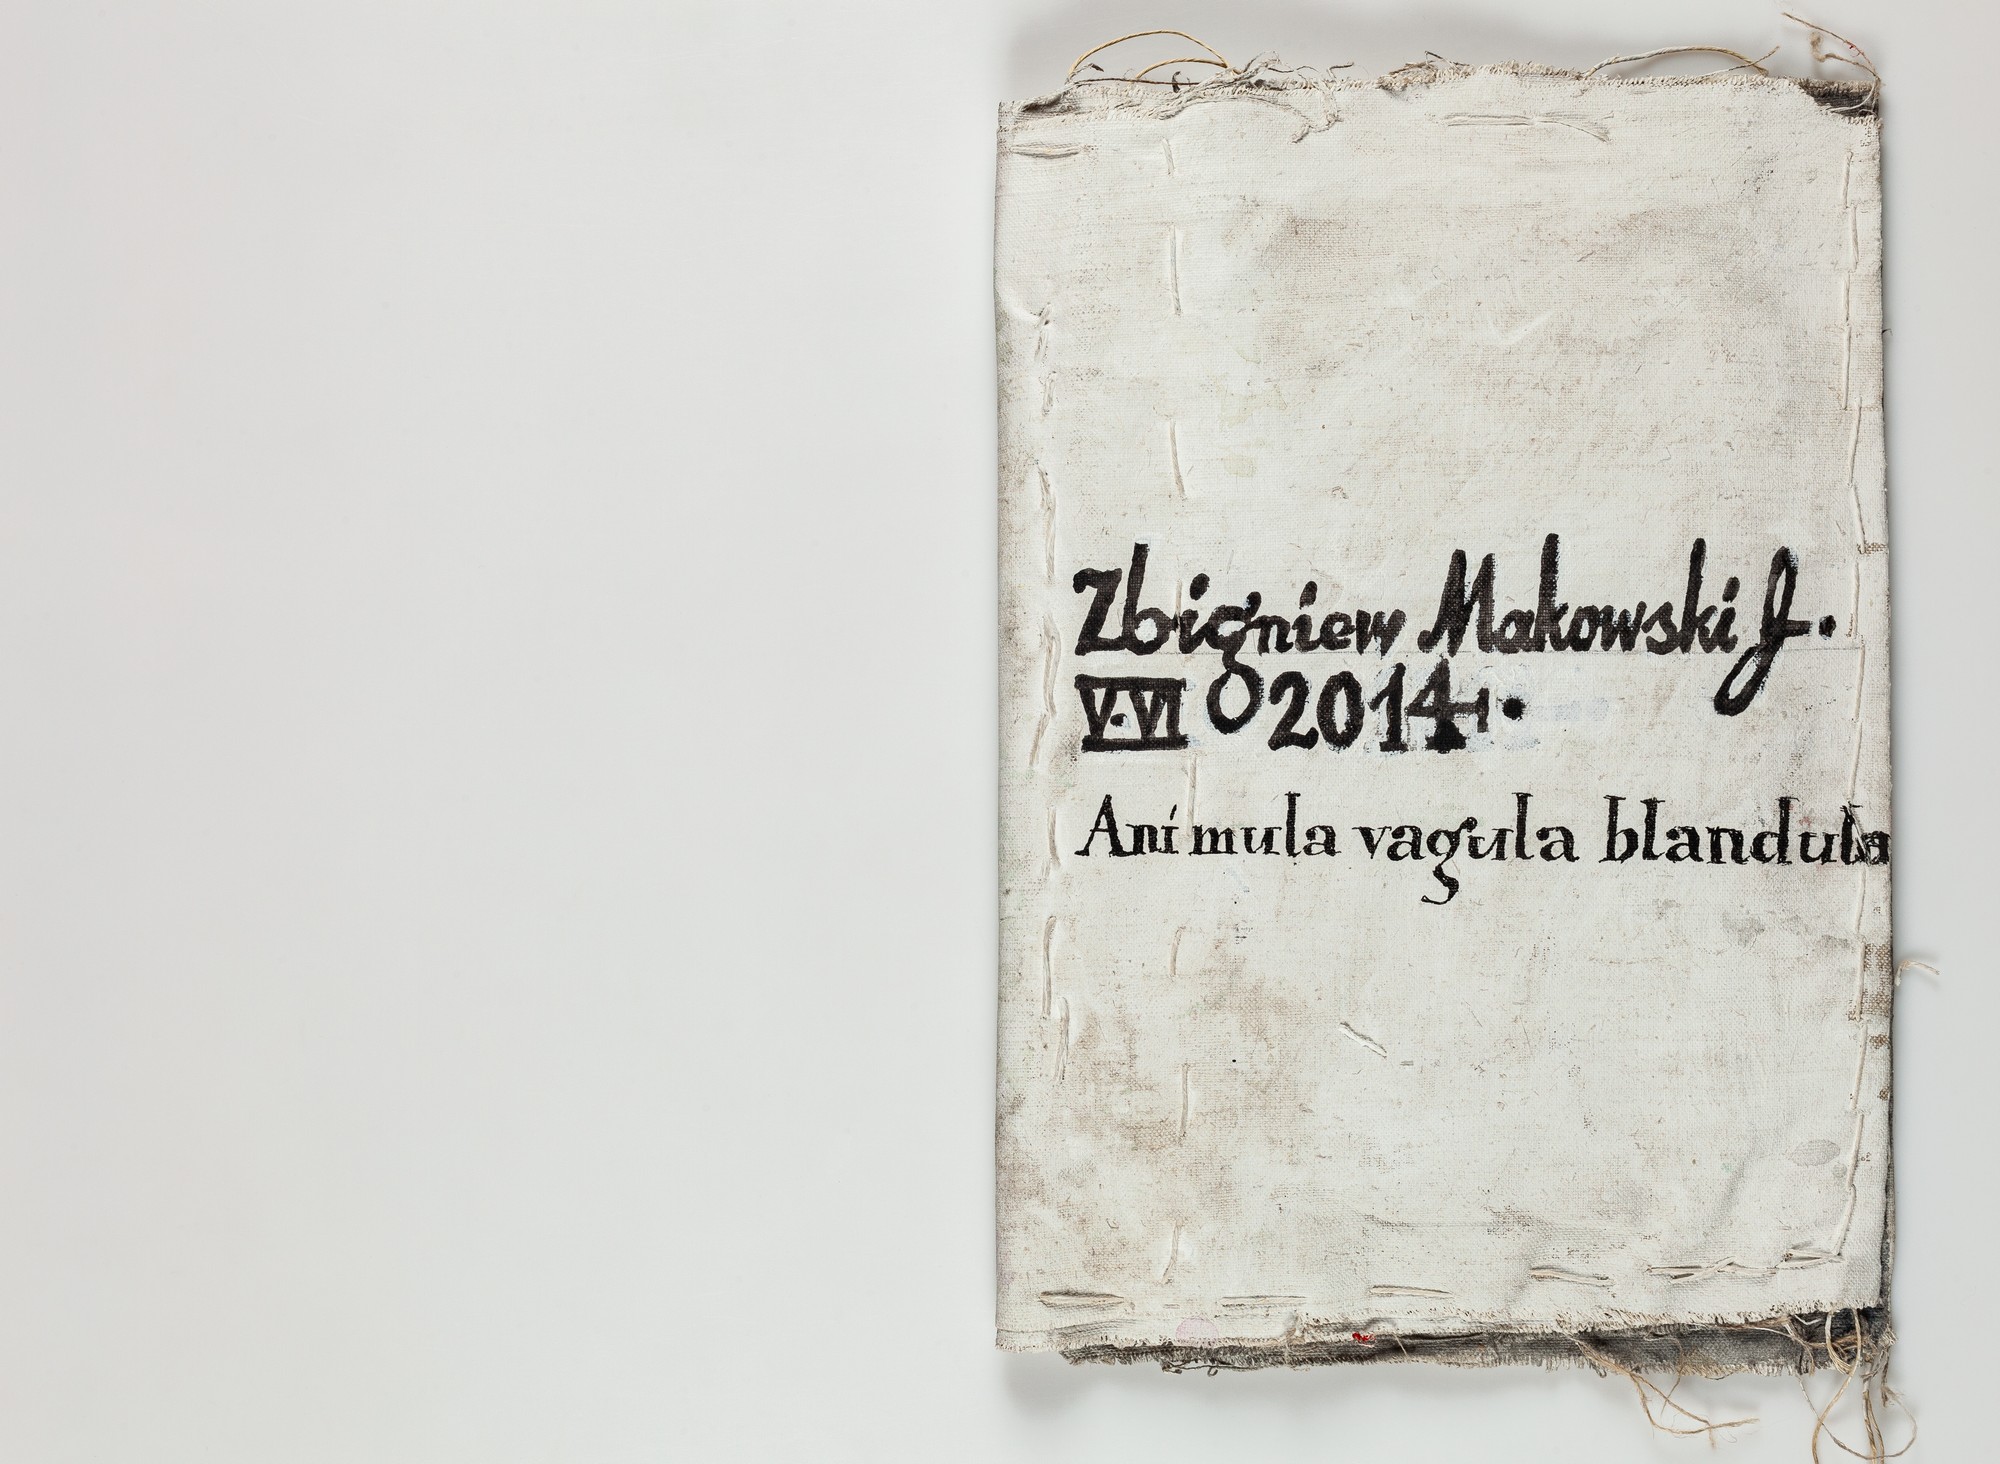 Zbigniew Makowski f.
V·VI 2014.
Animula vagula blandula